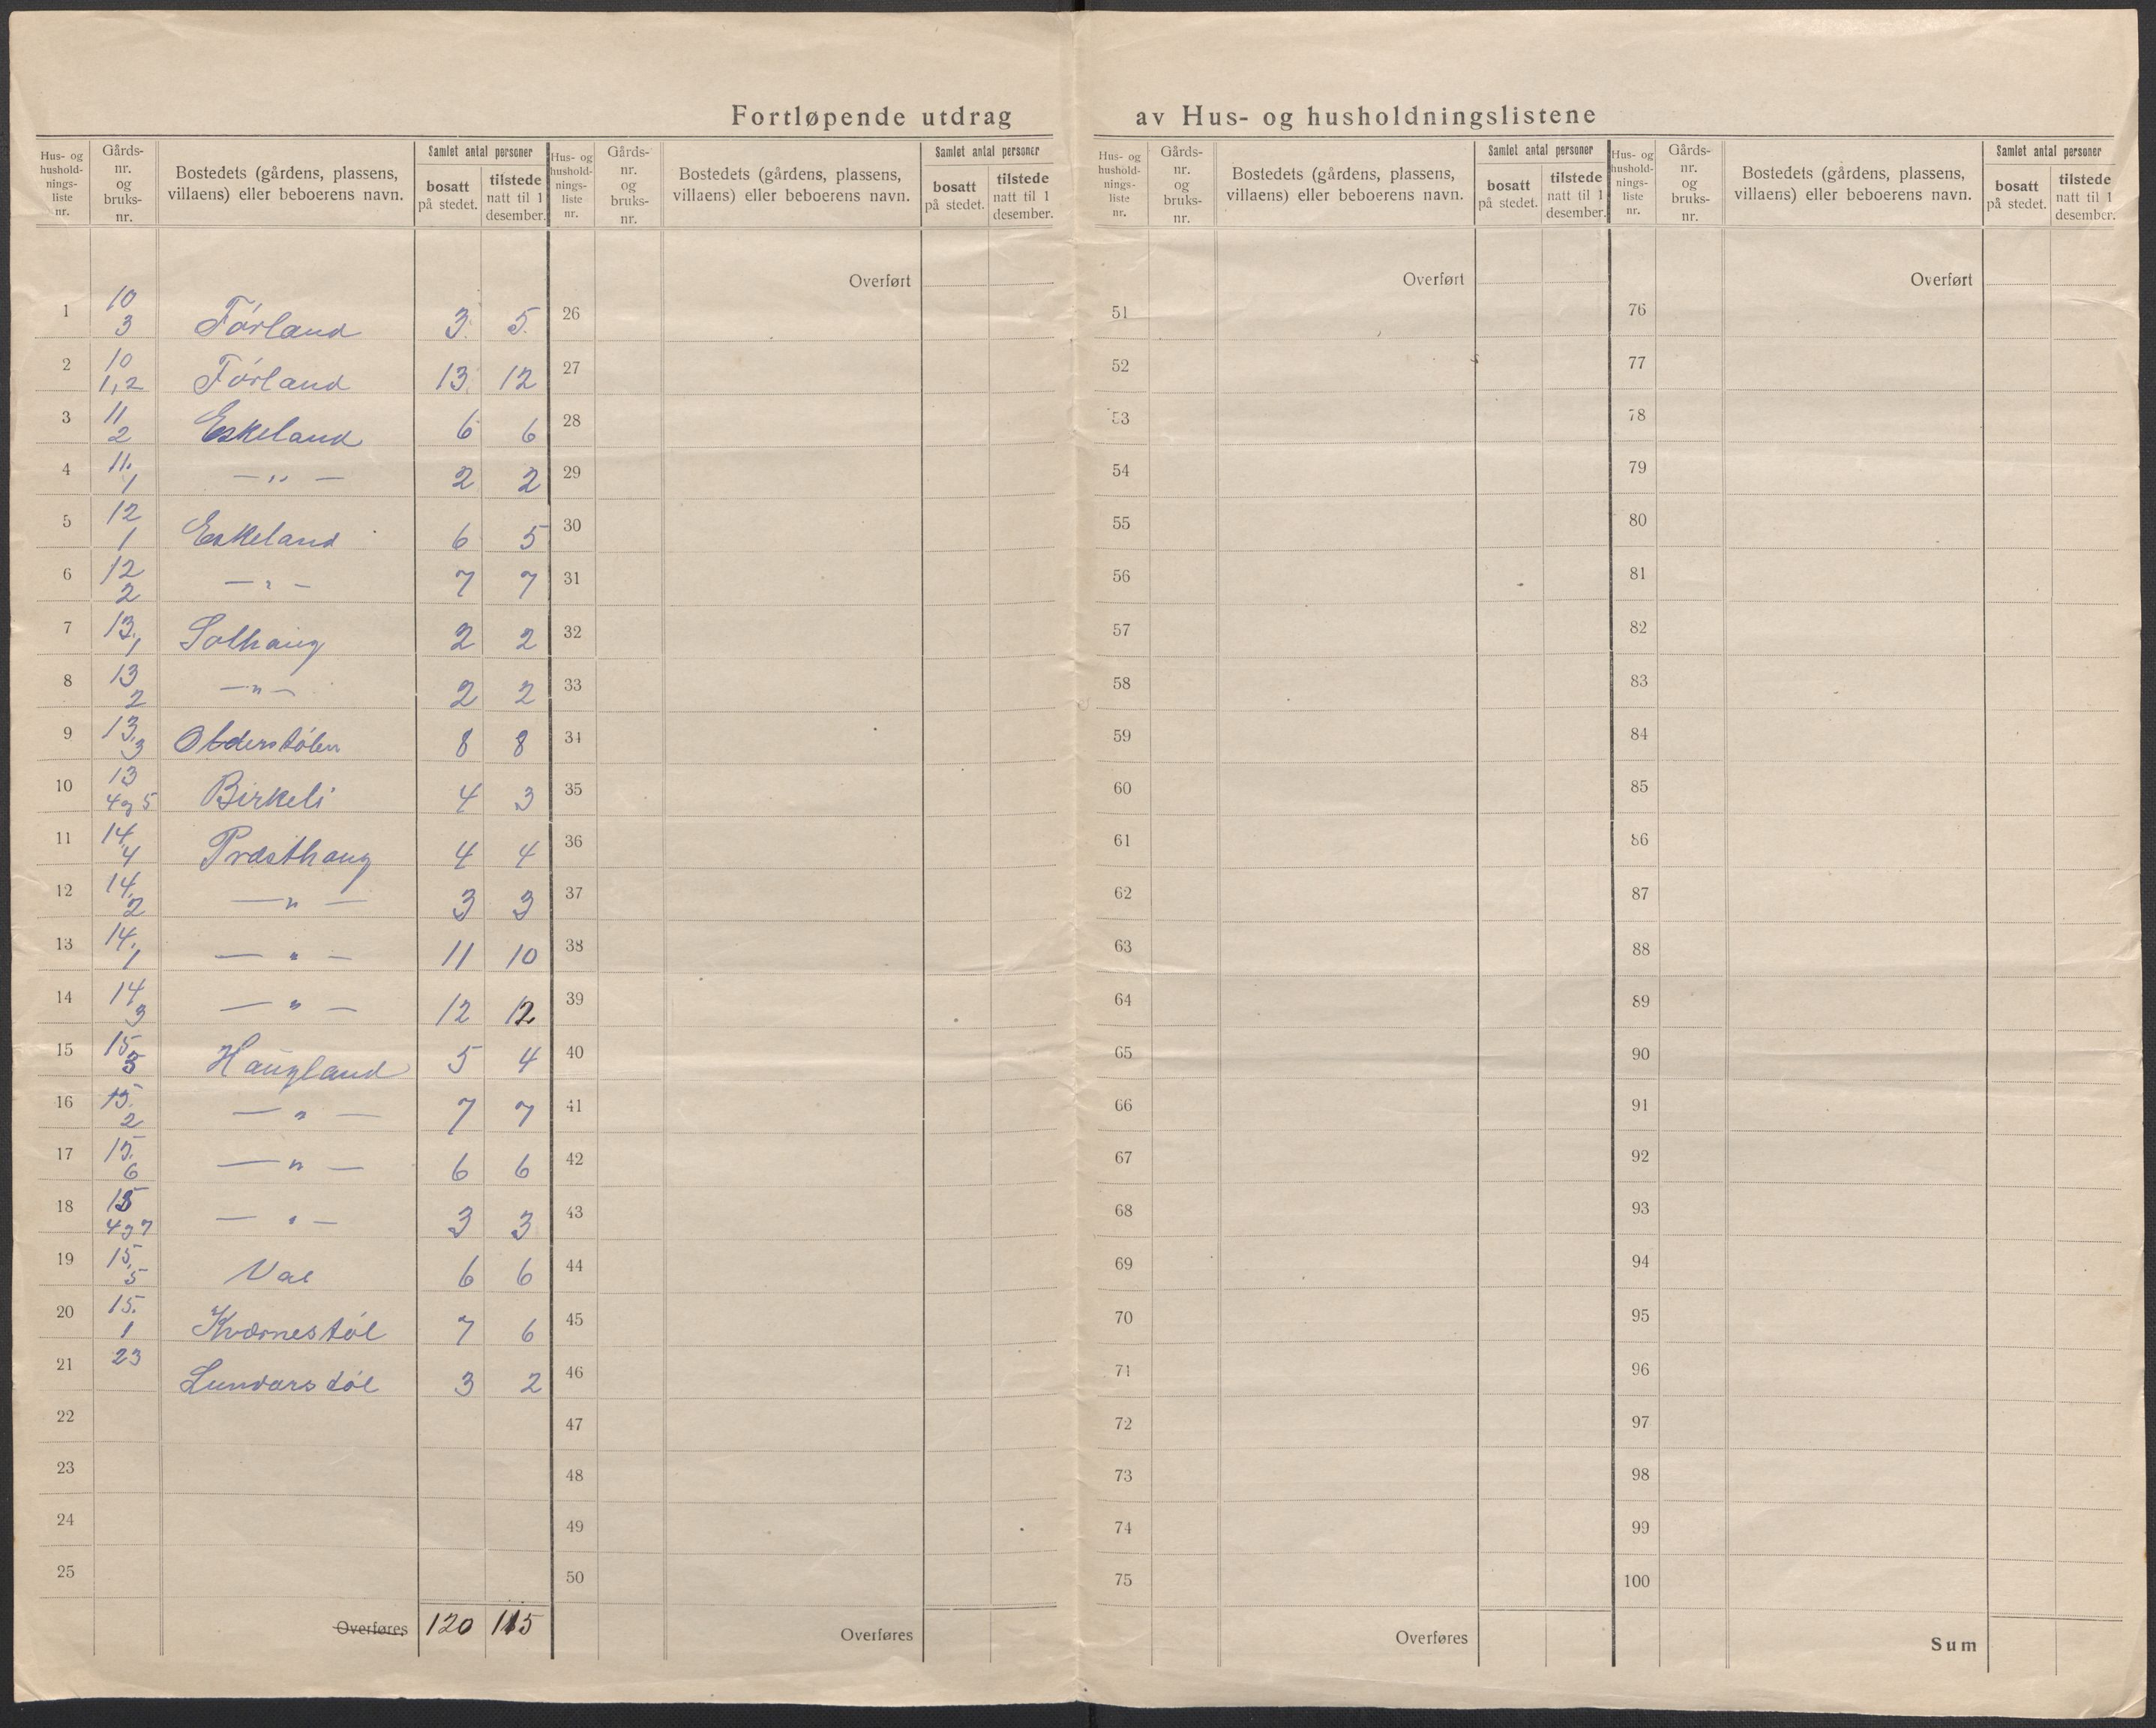 Fortløpende utdrag av Hus- og husholdningslistene
Hus- og hushold-nings-liste nr. | Gårds-nr. og bruks-nr. | Bostedets (gårdens, plassens, villaens) eller beboerens navn. | Samlet antal personer | bosatt på stedet. | tilstede natt til 1 desember.
1 10 3 Førland 3 5
2 10 1,2 Førland 13 12
3 11 2 Eskeland 6 6
4 11. 1 — " — 2 2
5 12 1 Eskeland 6 5
6 12 2 — " — 7 7
7 13, 1 Solhaug 2 2
8 13 2 — " — 2 2
9 13, 3 8 8
10 13 4 og 5 Birkeli 4 3
11 14, 4 Præsthaug 4 4
12 14, 2 — " — 3 3
13 14, 1 — " — 11 10
14 14 3 — " — 12 12
15 15 3 Haugland 5 4
16 15. 2 — " — 7 7
17 15. 6 — " — 6 6
18 15 4 og 7 — " — 3 3
19 15, 5 6 6
20 15. 1 Kvørnestøl 7 6
21 23 3 2
22
23
24
25
Overføres 120 115
Hus- og hushold-nings-liste nr. | Gårds-nr. og bruks-nr. | Bostedets (gårdens, plassens, villaens) eller beboerens navn. | Samlet antal personer | bosatt på stedet. | tilstede natt til 1 desember.
Overført
26
27
28
29
30
31
32
33
34
35
36
37
38
39
40
41
42
43
44
45
46
47
48
49
50
Overføres
Hus- og hushold-nings-liste nr. | Gårds-nr. og bruks-nr. | Bostedets (gårdens, plassens, villaens) eller beboerens navn. | Samlet antal personer | bosatt på stedet. | tilstede natt til 1 desember.
Overført
51
52
53
54
55
56
57
58
59
60
61
62
63
64
65
66
67
68
69
70
71
72
73
74
75
Overføres
Hus- og hushold-nings-liste nr. | Gårds-nr. og bruks-nr. | Bostedets (gårdens, plassens, villaens) eller beboerens navn. | Samlet antal personer | bosatt på stedet. | tilstede natt til 1 desember.
Overført
76
77
78
79
80
81
82
83
84
85
86
87
88
89
90
91
92
93
94
95
96
97
98
99
100
Sum